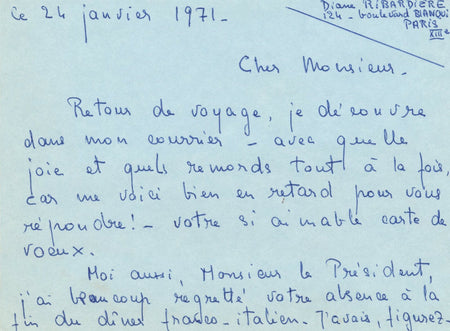 Ce 24 janvier 1971_
Diane RIBARDIERE
124 - boulevard BLANQUI
PARIS
XIIIe
Cher Monsieur_
Retour de voyage, je découvre
dans mon courrier - avec quelle
joie et quels remords tout à la fois,
car me voici bien en retard pour vous
répondre! - votre si aimable carte de
voeux.
Moi aussi, Monsieur le Président,
j'ai beaucoup regretté votre absence à la
fin du dîner franco-italien. J'avais, figurez-